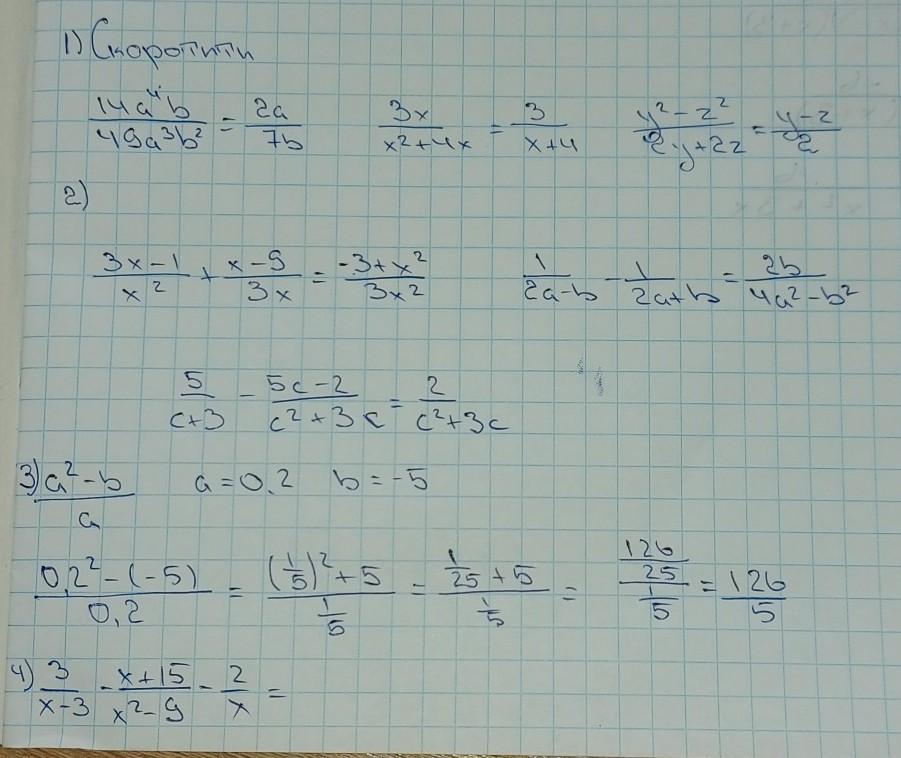 1) Скоротити
14a⁴b/49a³b² = 2a/7b    3x/(x²+4x) = 3/(x+4)    (y²-z²)/(2y+2z) = (y-z)/2
2)
(3x-1)/x² + (x-9)/3x = (-3+x²)/3x²    1/(2a-b) - 1/(2a+b) = 2b/(4a²-b²)
5/(c+3) - (5c-2)/(c²+3c) = 2/(c²+3c)
3) (a²-b)/a    a=0,2    b=-5
(0,2²-(-5))/0,2 = ((1/5)²+5)/(1/5) = (1/25+5)/(1/5) = (126/25)/(1/5) = 126/5
4) 3/(x-3) - (x+15)/(x²-9) - 2/x =